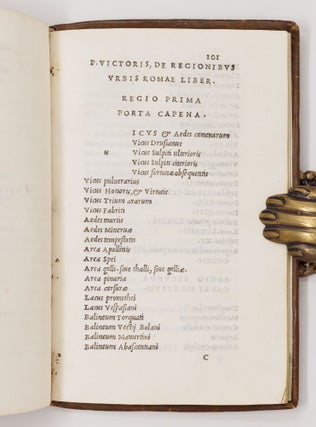 101
P. VICTORIS, DE REGIONIBVS
VRBIS ROMAE LIBER.
REGIO PRIMA
PORTA CAPENA.
ICVS & Aedes camenarum
Vicus Drusianus
N Vicus Sulpiti ulterioris
Vicus Sulpiti citerioris
Vicus fortunæ obsequentis
Vicus puluerarius
Vicus Honoru, & Virtutis
Vicus Trium ararum
Vicus Fabrin
Aedes martis
Aedes Mineruæ
Aedes tempestatis
Area Apollinis
Area Spei
Area galli, siue thalli, siue galliæ.
Area pinaria
Area carsuræ
Lacus promethei
Lacus Vespasiani
Balineum Torquati
Balineum Vectij Bolani
Balineum Mamertini
Balineum Abascantiani
C